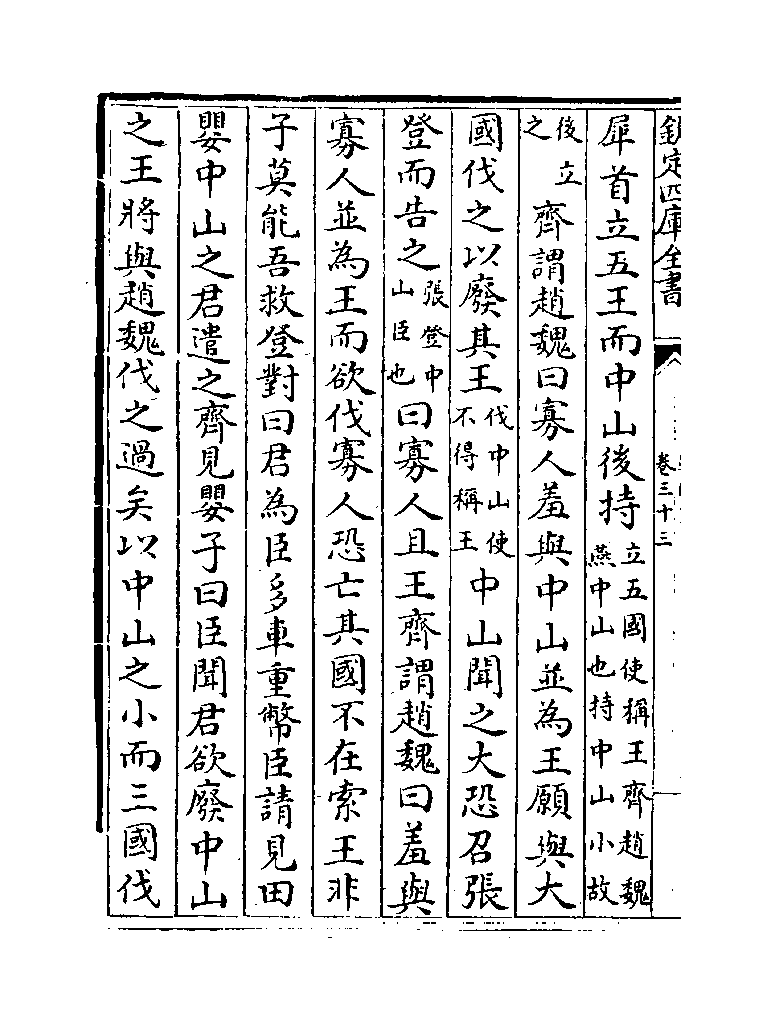 欽定四庫全書
卷三十三
犀首立五王而中山後持立五國使稱王齊趙魏燕中山也持中山小故
後立之齊謂趙魏曰寡人羞與中山並為王願與大
國伐之以廢其王伐中山使不得稱王中山聞之大恐召張
登而告之張登中山臣也曰寡人且王齊謂趙魏曰羞與
寡人並為王而欲伐寡人恐亡其國不在索王非
子莫能吾救登對曰君為臣多車重幣臣請見田
嬰中山之君遣之齊見嬰子曰臣聞君欲廢中山
之王將與趙魏伐之過矣以中山之小而三國伐